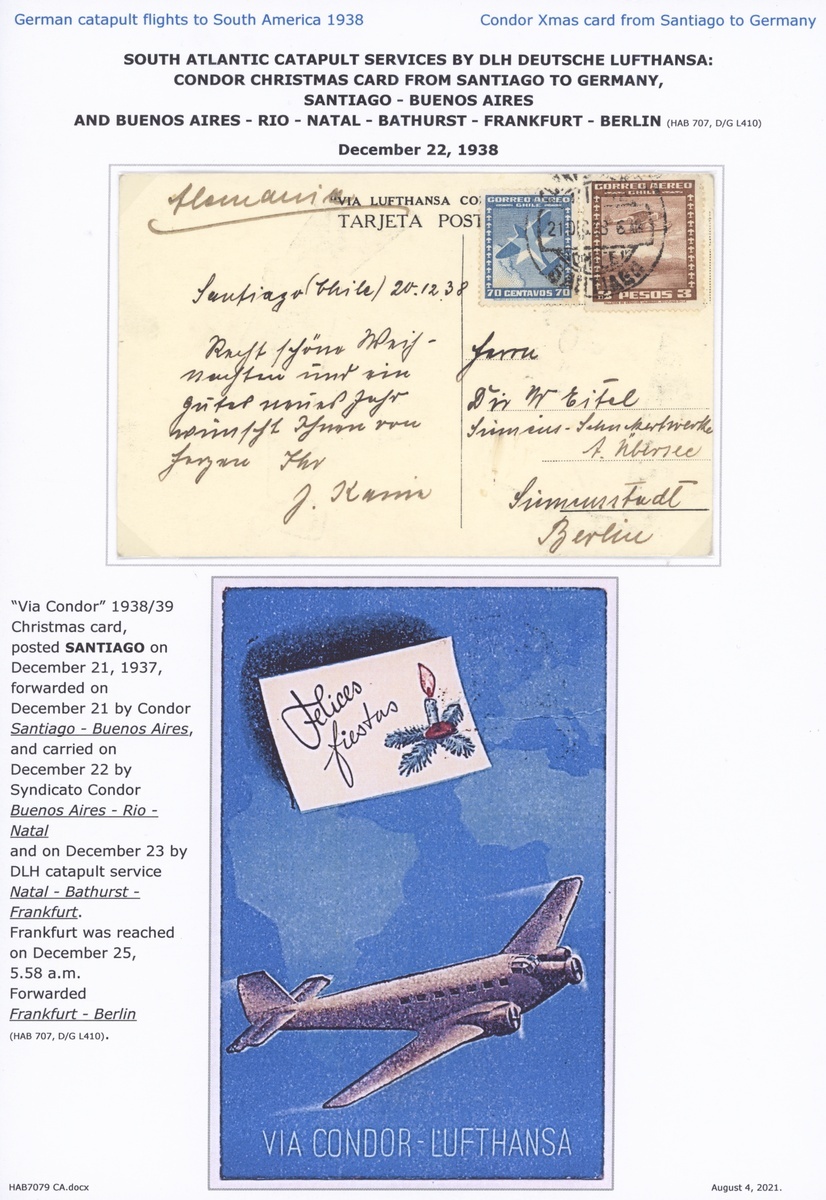 German catapult flights to South America 1938
Condor Xmas card from Santiago to Germany
SOUTH ATLANTIC CATAPULT SERVICES BY DLH DEUTSCHE LUFTHANSA:
CONDOR CHRISTMAS CARD FROM SANTIAGO TO GERMANY,
SANTIAGO - BUENOS AIRES
AND BUENOS AIRES - RIO - NATAL - BATHURST - FRANKFURT - BERLIN (HAB 707, D/G L410)
December 22, 1938
Alemania
"VIA LUFTHANSA CO
TARJETA POST
CORREO AEREO
CHILE
70 CENTAVOS 70
CORREO AEREO
CHILE
PESOS 3
SANTIAGO
Santiago (Chile) 20.12.38
Recht schöne Weih-
nachten und ein
gutes neues Jahr
wünscht Ihnen von
Herzen Ihr
Herrn
Dir W Eitel
Siemens-Schuckertwerke
A. Übersee
Siemensstadt
Berlin
"Via Condor" 1938/39
Christmas card,
posted SANTIAGO on
December 21, 1937,
forwarded on
December 21 by Condor
Santiago - Buenos Aires,
and carried on
December 22 by
Syndicato Condor
Buenos Aires - Rio -
Natal
and on December 23 by
DLH catapult service
Natal - Bathurst -
Frankfurt.
Frankfurt was reached
on December 25,
5.58 a.m.
Forwarded
Frankfurt - Berlin
(HAB 707, D/G L410).
Felices
fiestas
VIA CONDOR-LUFTHANSA
HAB7079 CA.docx
August 4, 2021.